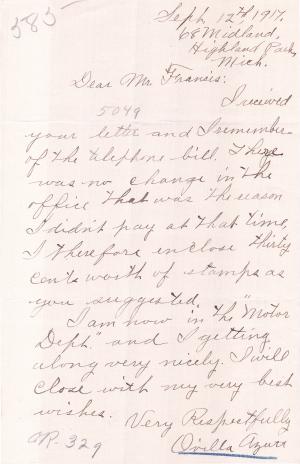 585
Sept. 12th 1917.
68 Midland,
Highland Park,
Mich.
Dear Mr. Francis:
I received
5049
your letter and I remember
of the telephone bill. There
was no change in the
office that was the reason
I didn't pay at that time,
I therefore enclose thirty
cents worth of stamps as
you suggested.
I am now in the "Motor
Dept." and I getting
along very nicely. I will
close with my very best
wishes.
Very Respectfully
R-329
Orilla Azura